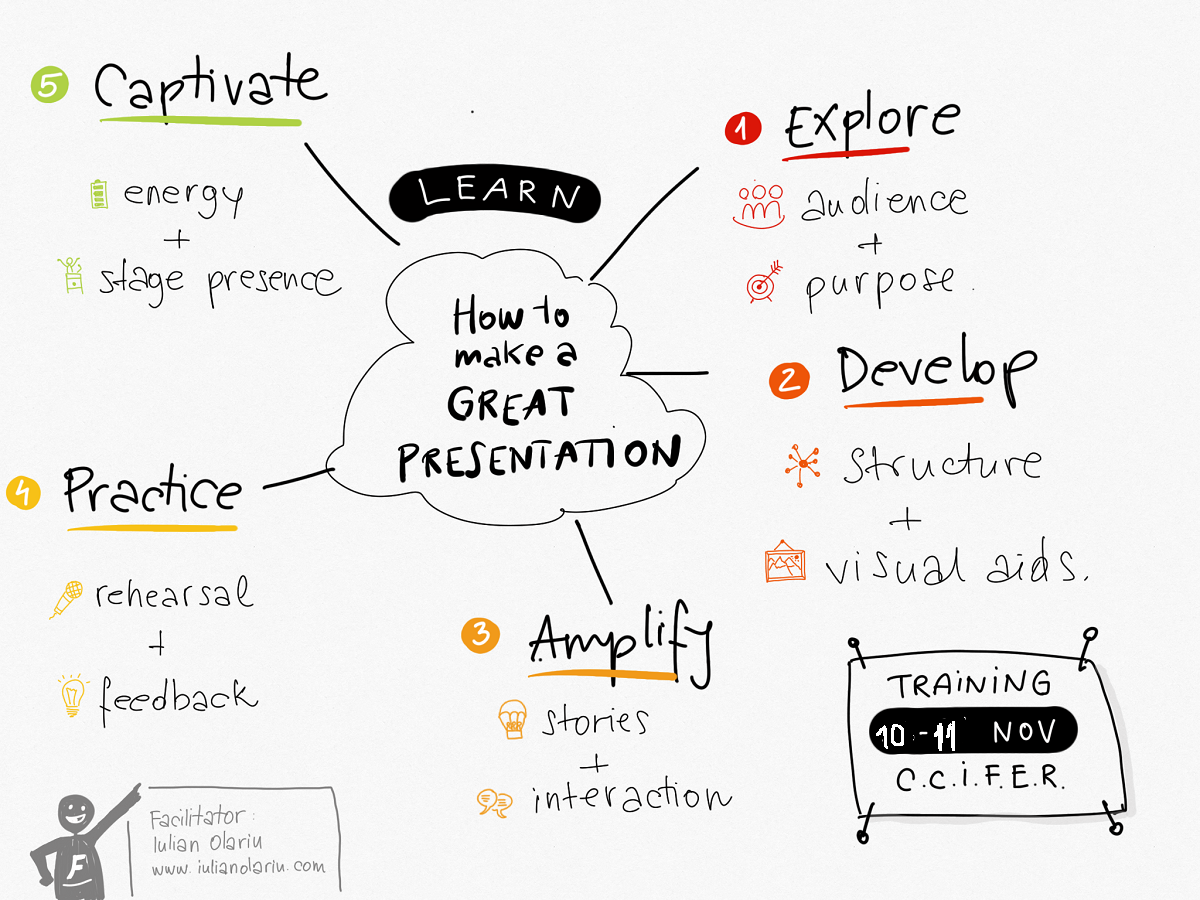 LEARN
How to
make a
GREAT
PRESENTATION
1 Explore
audience
+
purpose.
2 Develop
structure
+
visual aids.
3 Amplify
stories
+
interaction
4 Practice
rehearsal
+
feedback
5 Captivate
energy
+
stage presence
TRAINING
10-11 NOV
C.C.I.F.E.R.
F
Facilitator:
Iulian Olariu
www.iulianolariu.com